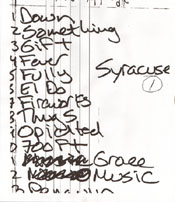 1 Down
2 Something
3 Gift
4 Fever
5 Fully
Syracuse
1
6 El Do
7 Fireworks
8 Thugs
9 Opiated
0 700 Ft
1 Grace
2 Music
3